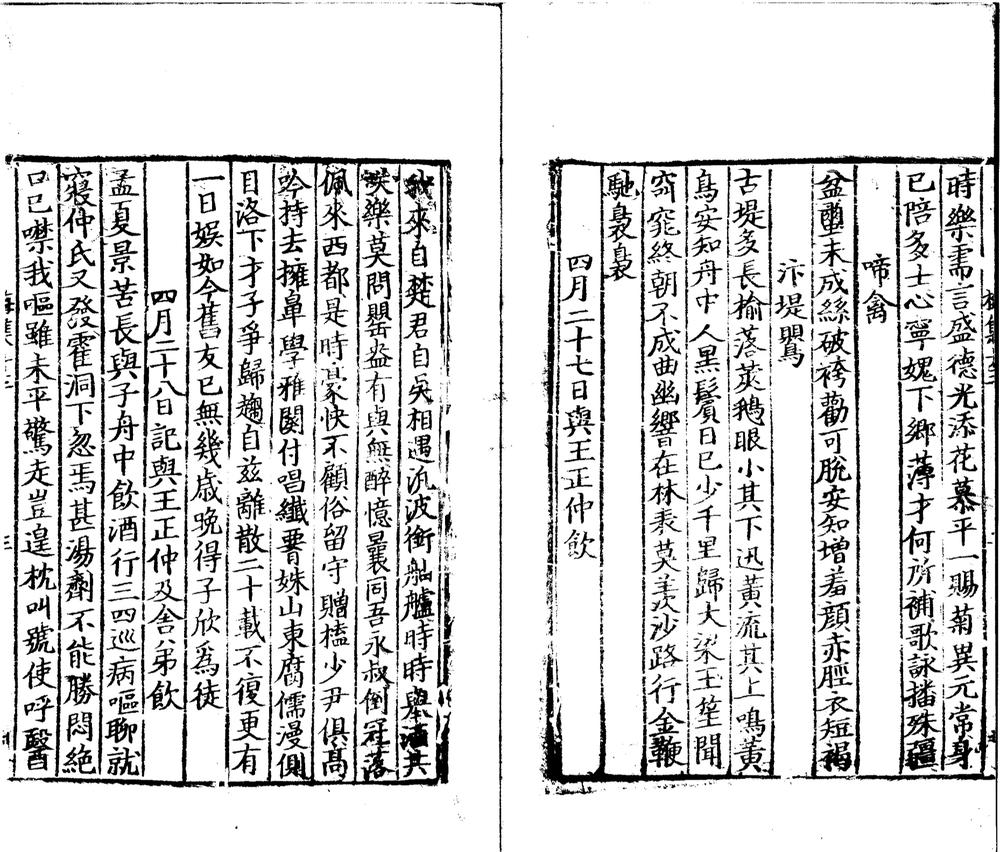 時樂需言盛德光添花慕平一賜菊異元常身
已陪多士心寧媿下鄉薄才何所補歌詠播殊疆
啼禽
盆𧖅未成絲破袴勸可脫安知增羞顏赤脛衣短褐
汴堤鸎
古堤多長榆落莢鵝眼小其下迅黃流其上鳴黃
鳥安知舟中人黑鬢日已少千里歸大梁玉堂聞
窈窕終朝不成曲幽響在林表莫羨沙路行金鞭
馳裊裊
四月二十七日與王正仲飲
我來自楚君自吳相遇汎波銜舳艫時時舉酒共
笑樂莫問罌盎有與無醉憶曩同吾永叔倒冠落
佩來西都是時豪快不顧俗留守贈榼少尹俱高
吟持去擁鼻學雅闋付唱纖脣姝山東腐儒漫側
目洛下才子爭歸趨自茲離散二十載不復更有
一日娛如今舊友已無幾歲晚得子欣為徒
四月二十八日記與王正仲及舍弟飲
孟夏景苦長與子舟中飲酒行三四巡病嘔聊就
寢仲氏又發霍洞下忽焉甚湯劑不能勝悶絕
口已噤我嘔雖未平驚走豈遑枕叫號使呼醫